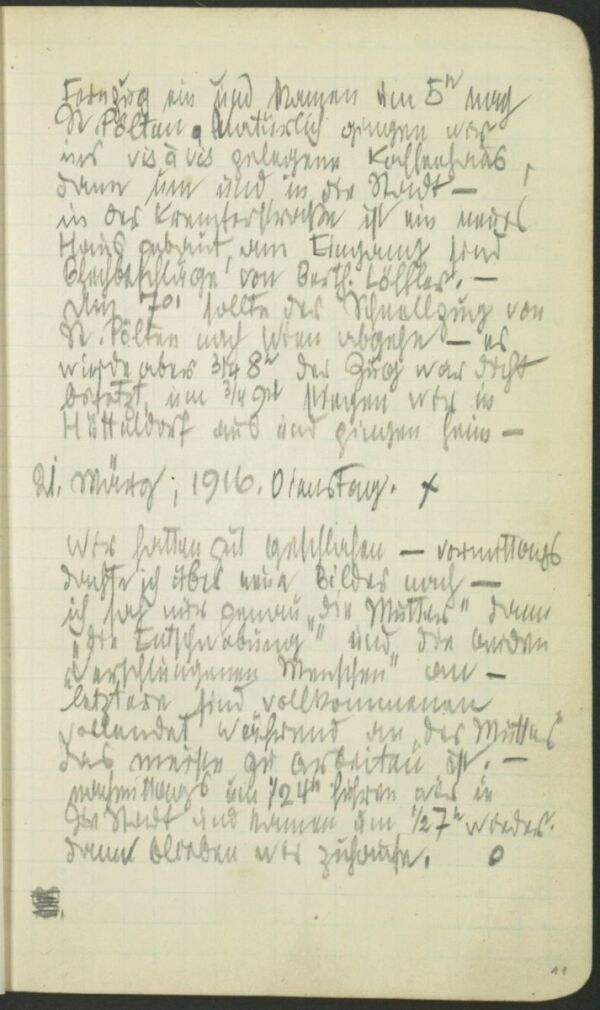 Fernzug ein und kamen um 5h nach
St. Pölten. Natürlich gingen wir
ins vis à vis gelegene Kaffeehaus,
dann um und in die Stadt —
in der Kremserstraße ist ein neues
Haus gebaut, am Eingang sind
Blechbeschläge von Berth. Löffler. —
um 701 sollte der Schnellzug von
St. Pölten nach Wien abgehe — es
wurde aber 3/4 8h der Zug war dicht
besetzt, um 3/4 9h stiegen wir in
Hütteldorf aus und gingen heim —
21. März; 1916. Dienstag. x
Wir hatten gut geschlafen — vormittags
dachte ich über neue Bilder nach —
ich sah mir genau „die Mutter" dann
„die Entschwebung" und „die beiden
verschlungenen Menschen" an —
letztere sind vollkommenen
vollendet während an „der Mutter"
das meiste zu arbeiten ist. —
nachmittags um 1/2 4h fuhren wir in
die Stadt und kamen um 1/2 7h wieder.
dann blieben wir zuhause. o